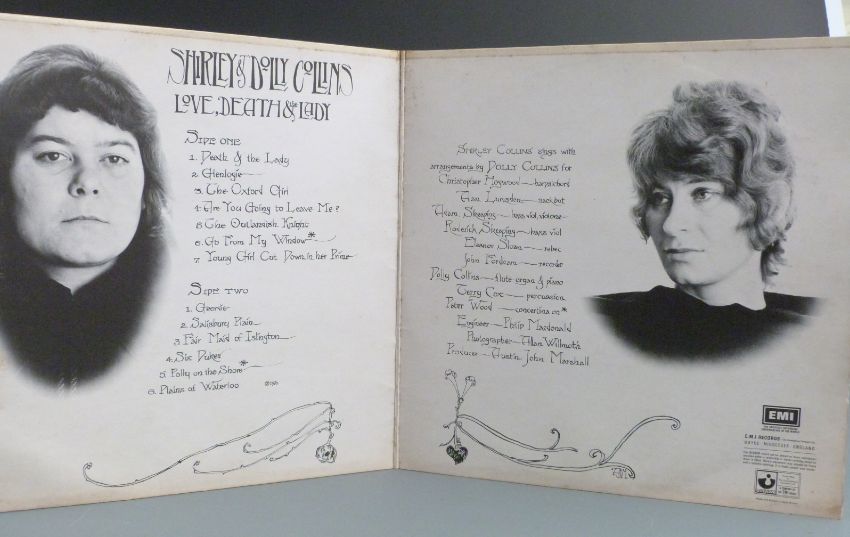 SHIRLEY & DOLLY COLLINS
LOVE, DEATH & the LADY
SIDE ONE
1. Death & the Lady
2. Glenlogie
3. The Oxford Girl
4. Are You Going to Leave Me?
5 The Outlandish Knight
6. Go From My Window *
7. Young Girl Cut Down in her Prime
SIDE TWO
1. Geordie
2. Salisbury Plain
3 Fair Maid of Islington
4. Six Dukes
5. Polly on the Shore *
6. Plains of Waterloo
SHIRLEY COLLINS sings with
arrangements by DOLLY COLLINS for
Christopher Hogwood — harpsichord
Alan Lumsden — sackbut
Adam Skeaping — bass viol, violone
Roderick Skeaping — bass viol
Eleanor Sloan — rebec
John Fordham — recorder
Dolly Collins — flute organ & piano
Terry Cox — percussion
Peter Wood — concertina on *
Engineer — Philip Macdonald
Photographer — Alan Willmoth
Producer — Austin John Marshall
EMI
E.M.I. RECORDS
HAYES MIDDLESEX ENGLAND